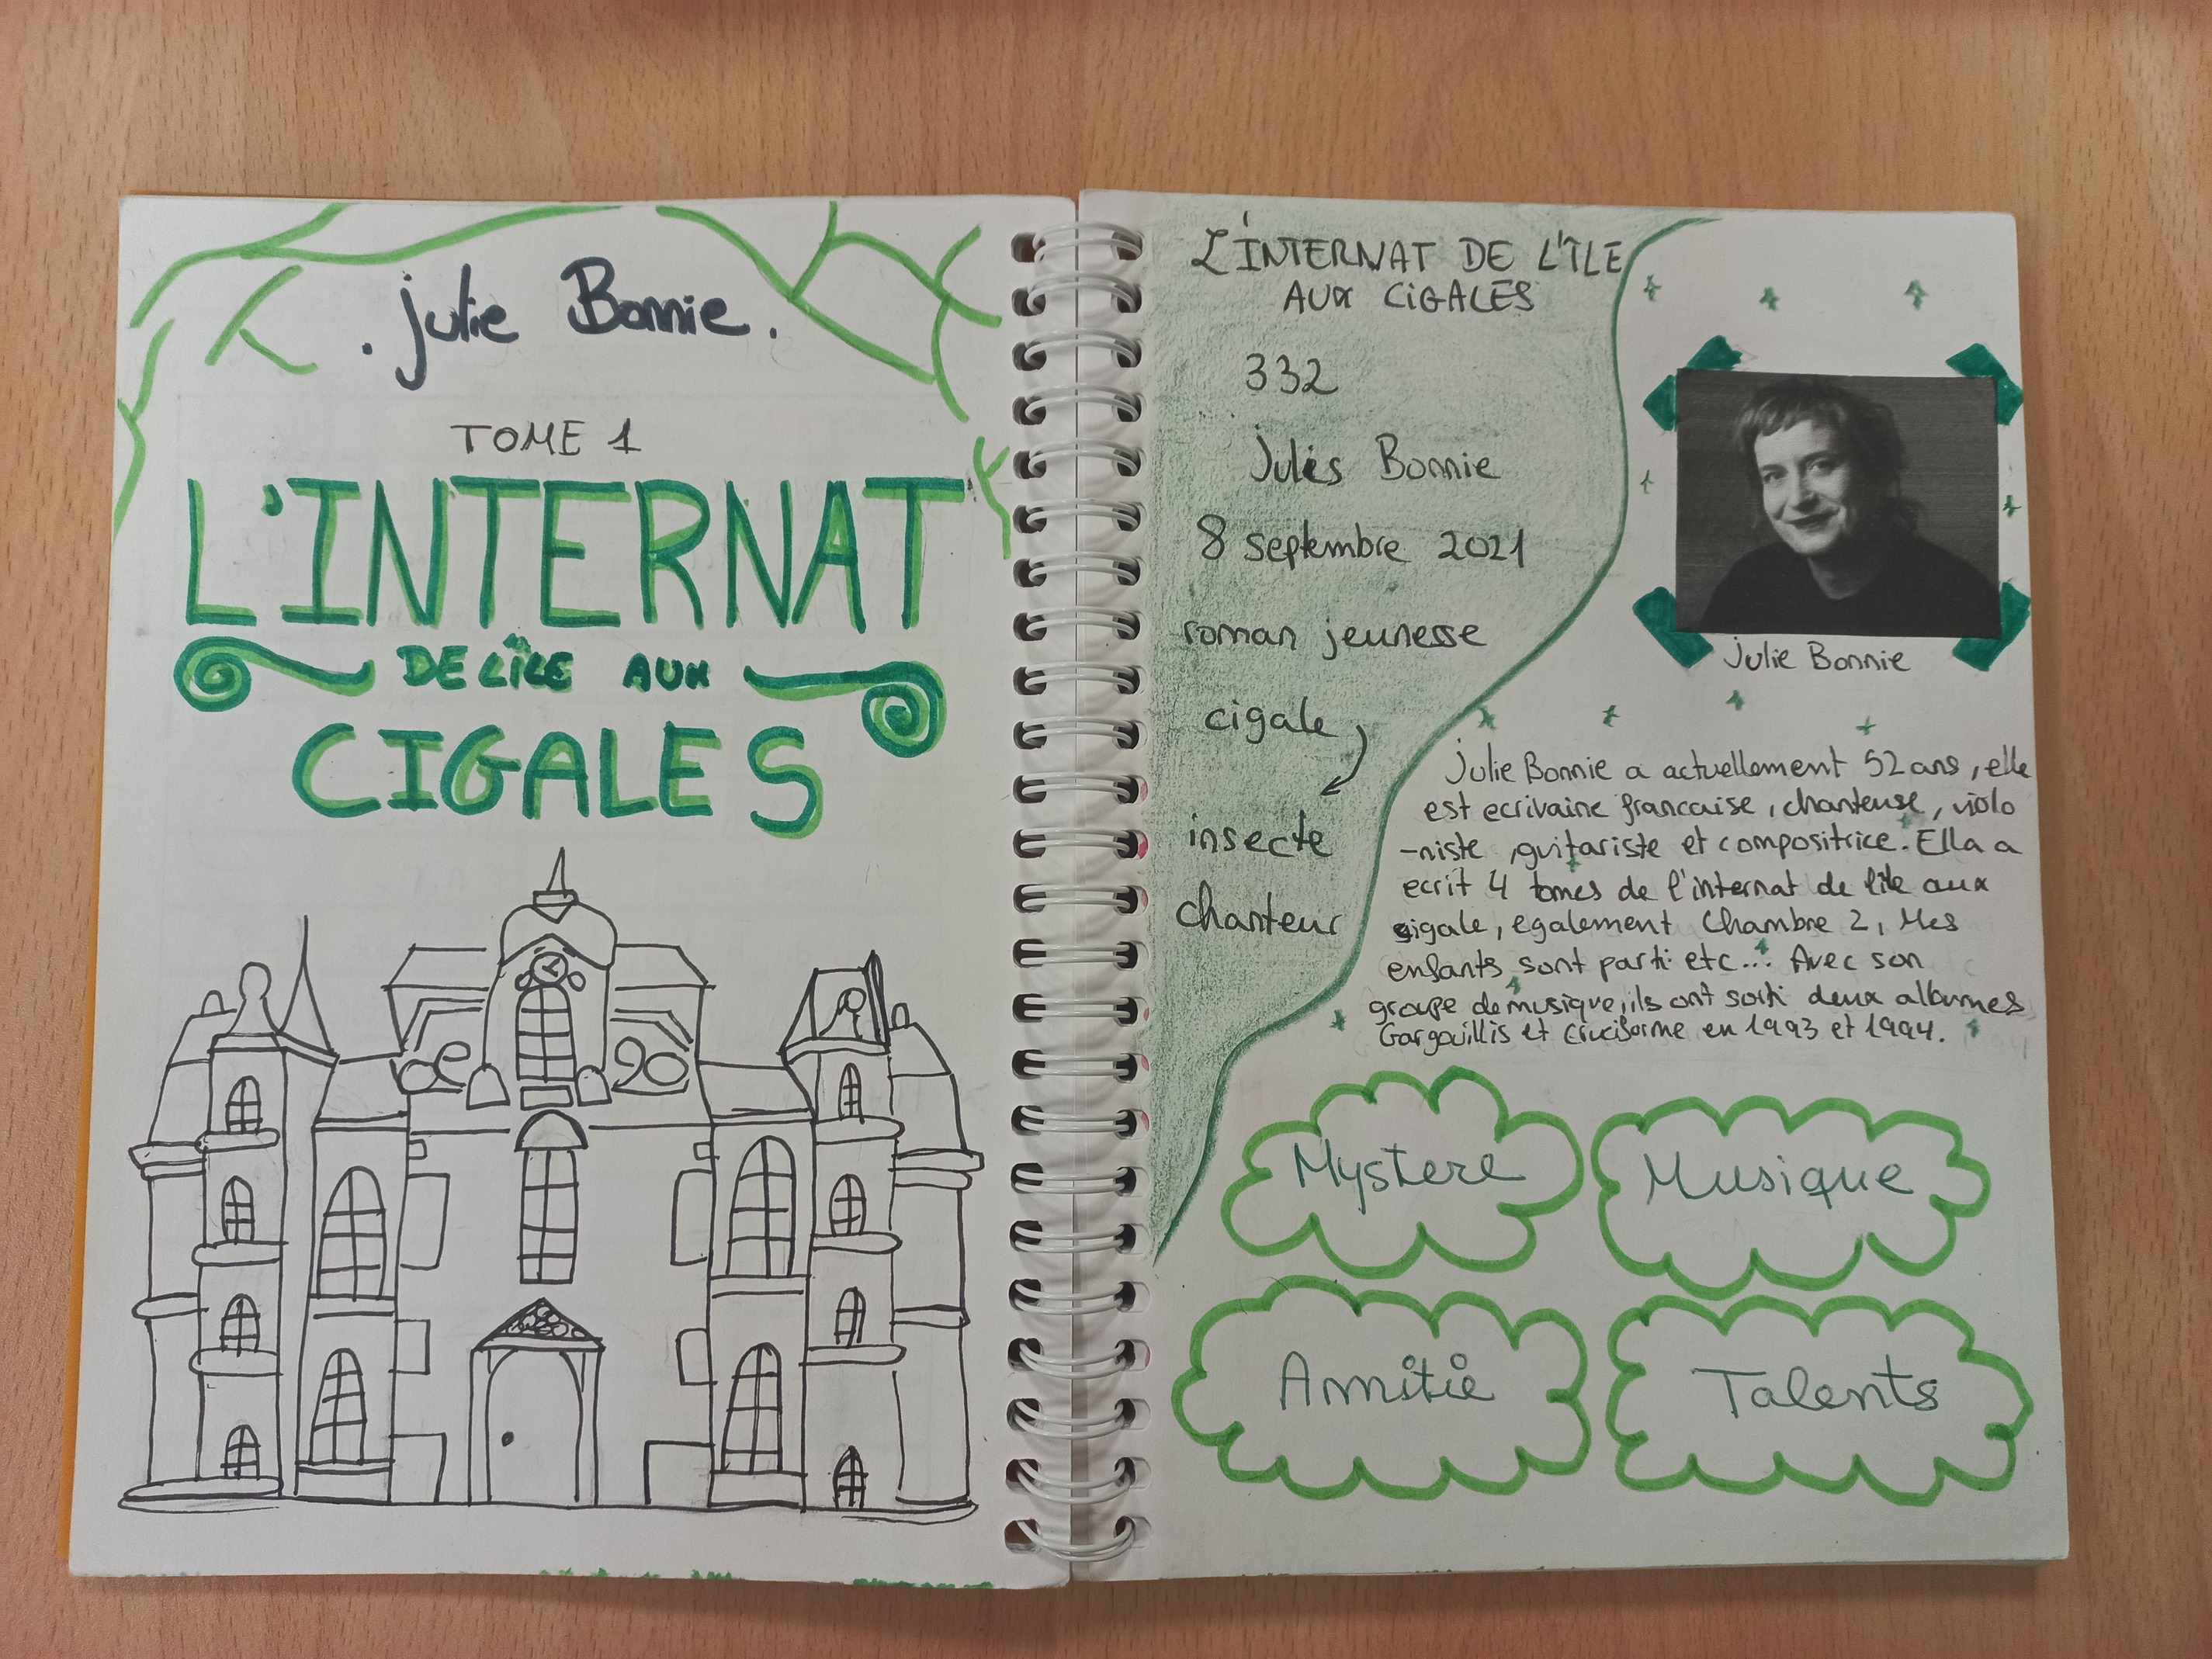 . Julie Bonnie .
TOME 1
L'INTERNAT
DE L'ÎLE AUX
CIGALES
L'INTERNAT DE L'ÎLE
AUX CIGALES
332
Jules Bonnie
8 septembre 2021
roman jeunesse
cigale
insecte
chanteur
Julie Bonnie
Julie Bonnie a actuellement 52 ans, elle
est ecrivaine francaise, chanteuse, violo
-niste, guitariste et compositrice. Ella a
ecrit 4 tomes de l'internat de l'île aux
cigale, egalement Chambre 2, Mes
enfants sont parti etc... Avec son
groupe de musique, ils ont sorti deux albumes
Gargouillis et Cruciforme en 1993 et 1994.
Mystere
Musique
Amitié
Talents